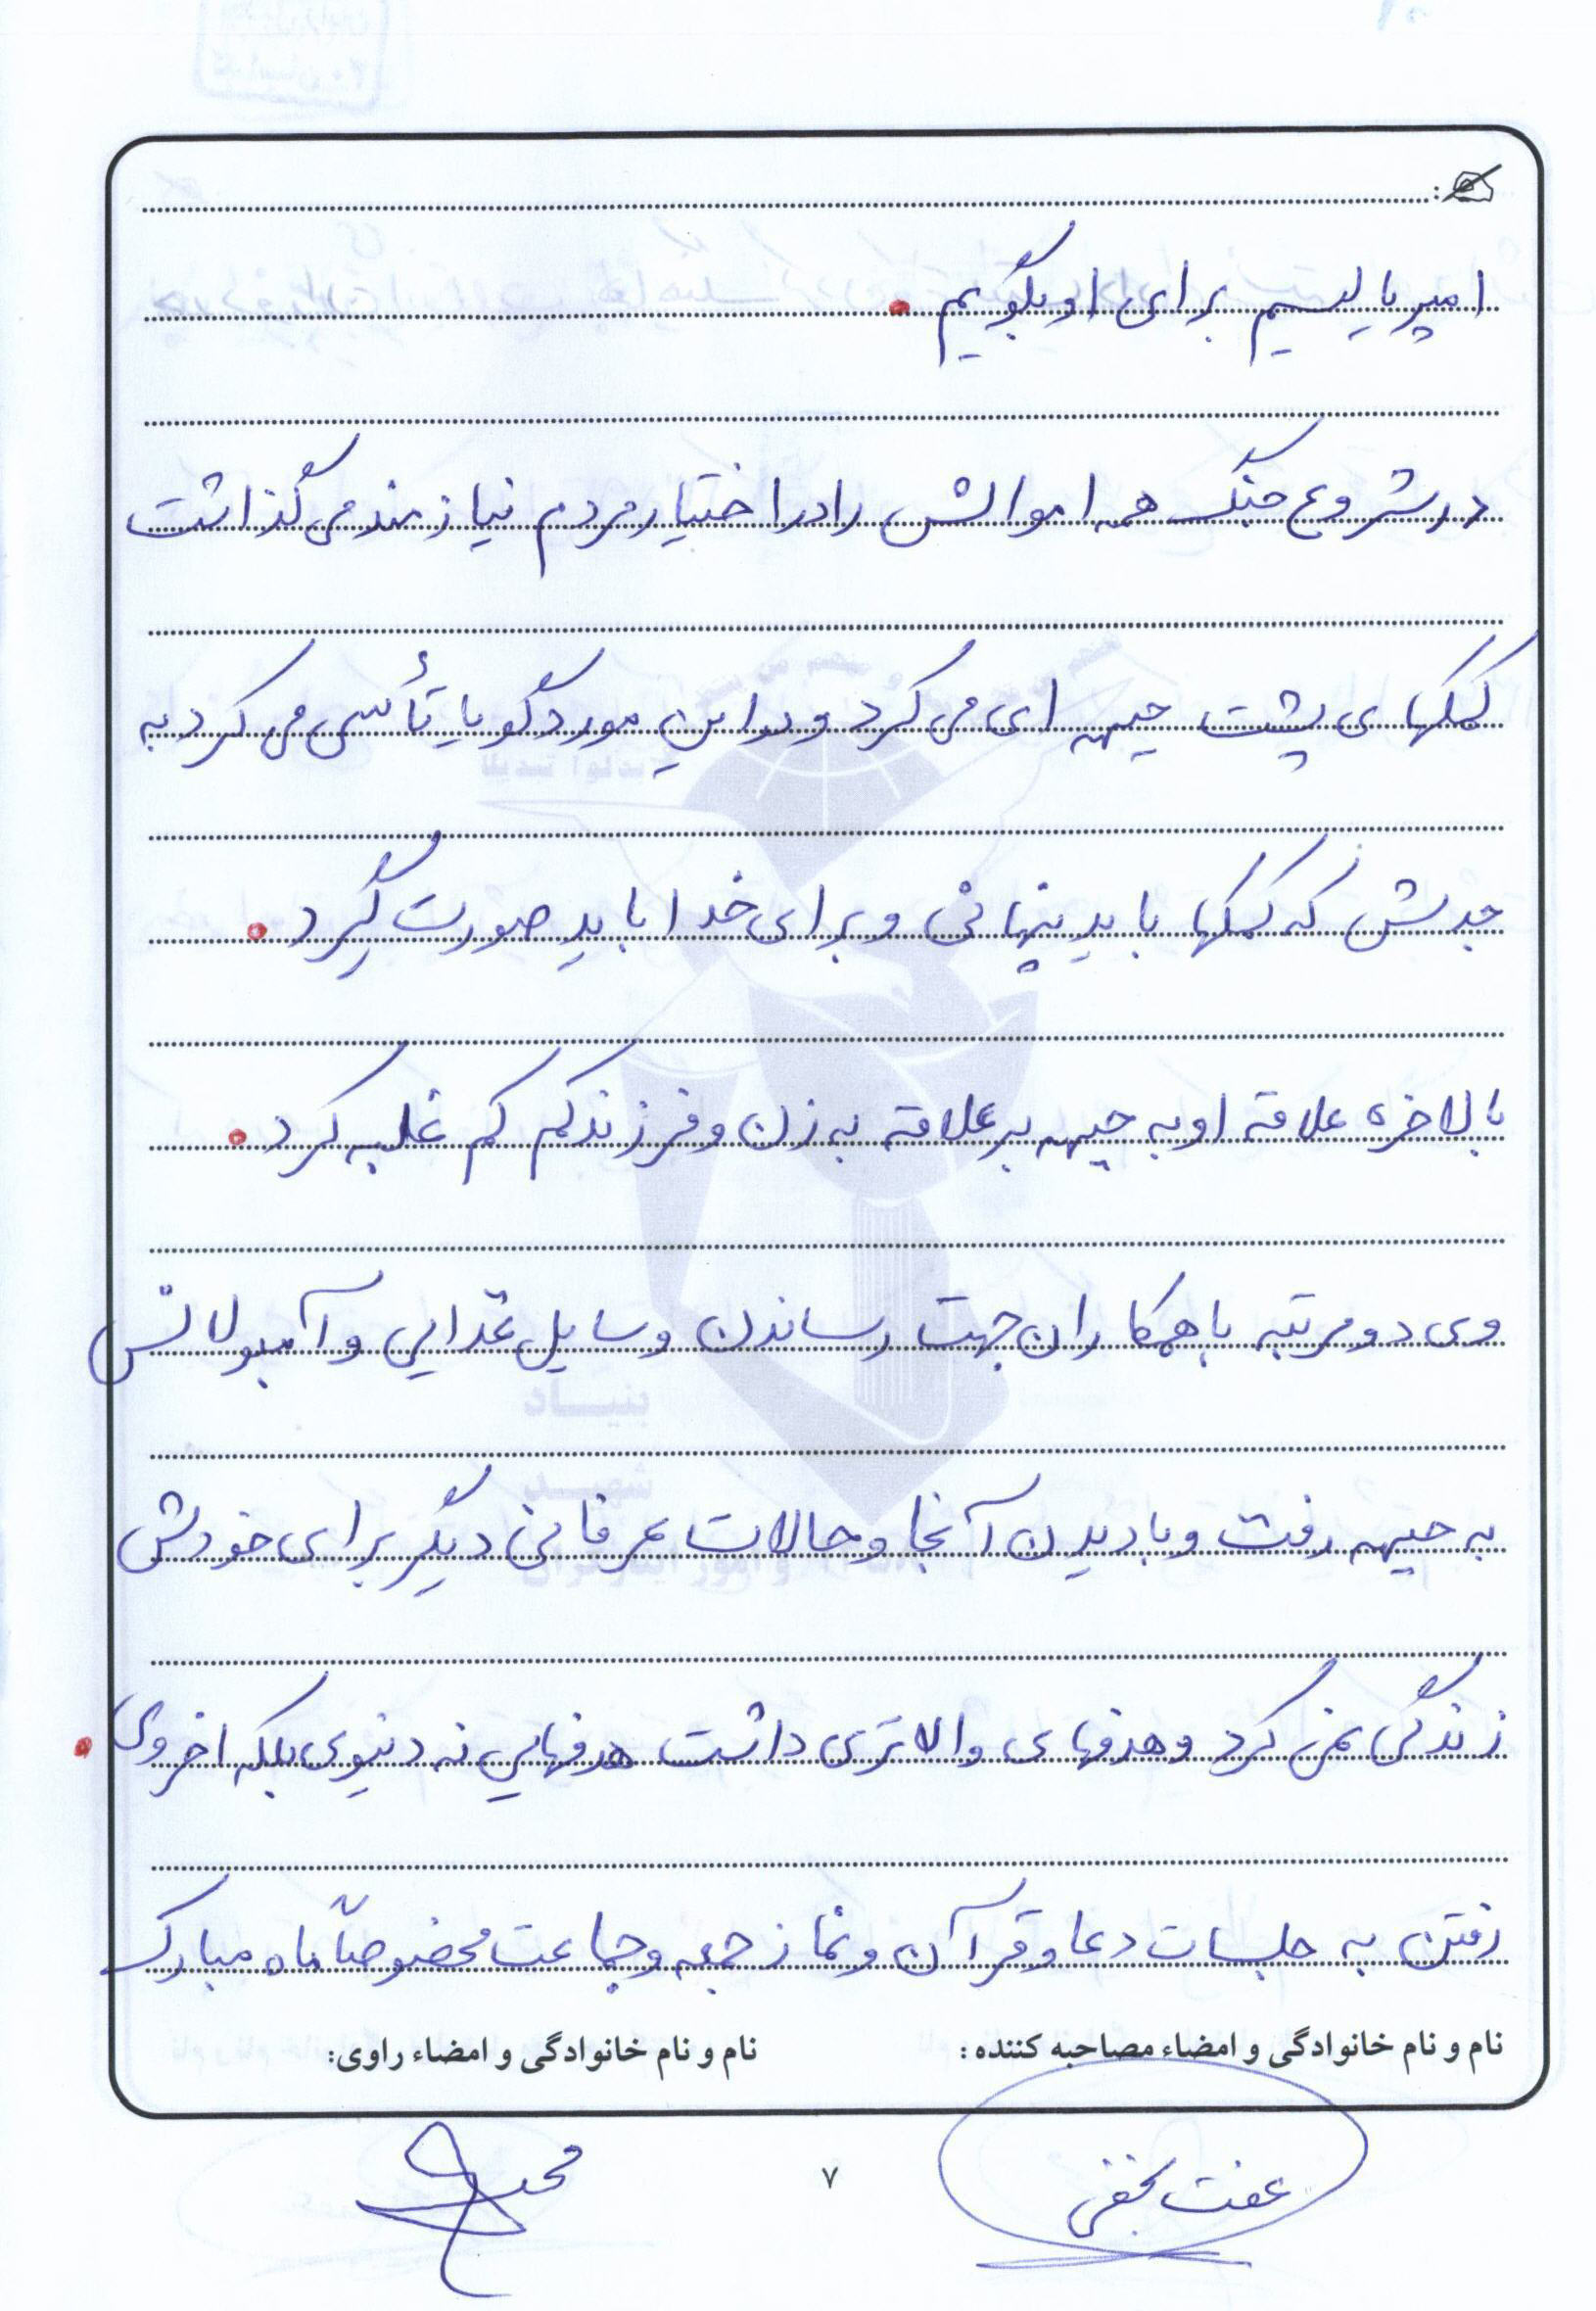 امپریالیسیم برای او بگوییم.
در شروع جنگ همه اموالش را در اختیار مردم نیازمند می گذاشت
کمکهای پشت جبهه ای می کرد و در این مورد گویا تأسی می کرد به
جدش که کمکها باید پنهانی و برای خدا باید صورت گیرد.
بالاخره علاقه او به جبهه بر علاقه به زن و فرزند کم کم غلبه کرد.
وی دو مرتبه با همکاران جهت رساندن وسایل غذایی و آمبولانس
به جبهه رفت و با دیدن آنجا و حالات عرفانی دیگر برای خودش
زندگی نمی کرد و هدفهای والاتری داشت هدفهایی نه دنیوی بلکه اخروی.
رفتن به جلسات دعا و قرآن و نماز جمعه و جماعت مخصوصاً ماه مبارک
نام و نام خانوادگی و امضاء مصاحبه کننده: نام و نام خانوادگی و امضاء راوی:
عفت ۷
بنیاد
شهید